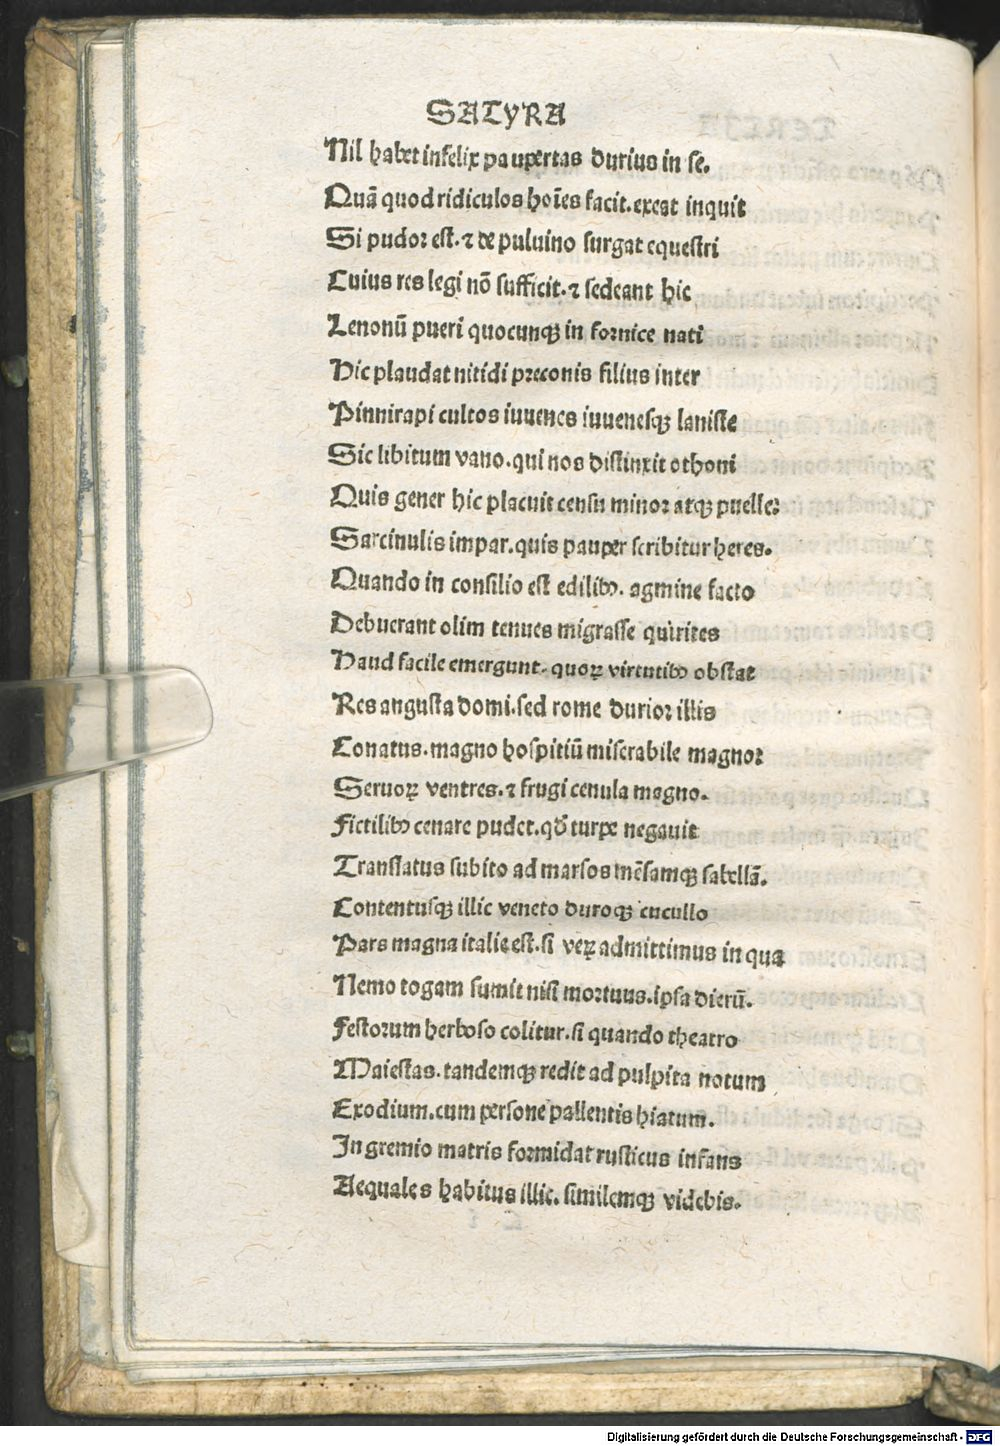 SATYRA
Nil habet infelix paupertas durius in se.
Quã quod ridiculos hoĩes facit. exeat inquit
Si pudor est. ⁊ de puluino surgat equestri
Cuius res legi nõ sufficit. ⁊ sedeant hic
Lenonũ pueri quocunqꝫ in fornice nati
Hic plaudat nitidi preconis filius inter
Pinnirapi cultos iuuenes iuuenesqꝫ laniste
Sic libitum vano. qui nos distinxit othoni
Quis gener hic placuit censu minor atqꝫ puelle:
Sarcinulis impar. quis pauper scribitur heres.
Quando in consilio est edilibꝰ. agmine facto
Debuerant olim tenues migrasse quirites
Haud facile emergunt. quoꝝ virtutibꝰ obstat
Res angusta domi. sed rome durior illis
Conatus. magno hospitiũ miserabile magnor
Seruoꝝ ventres. ⁊ frugi cenula magno.
Fictilibꝰ cenare pudet. qđ turpe negauit
Translatus subito ad marsos mẽsamqꝫ sabellã.
Contentusqꝫ illic veneto duroqꝫ cucullo
Pars magna italie est. si veꝝ admittimus in qua
Nemo togam sumit nisi mortuus. ipsa dierũ.
Festorum herboso colitur. si quando theatro
Maiestas. tandemqꝫ redit ad pulpita notum
Exodium. cum persone pallentis hiatum.
In gremio matris formidat rusticus infans
Aequales habitus illic. similemqꝫ videbis.
Digitalisierung gefördert durch die Deutsche Forschungsgemeinschaft - DFG